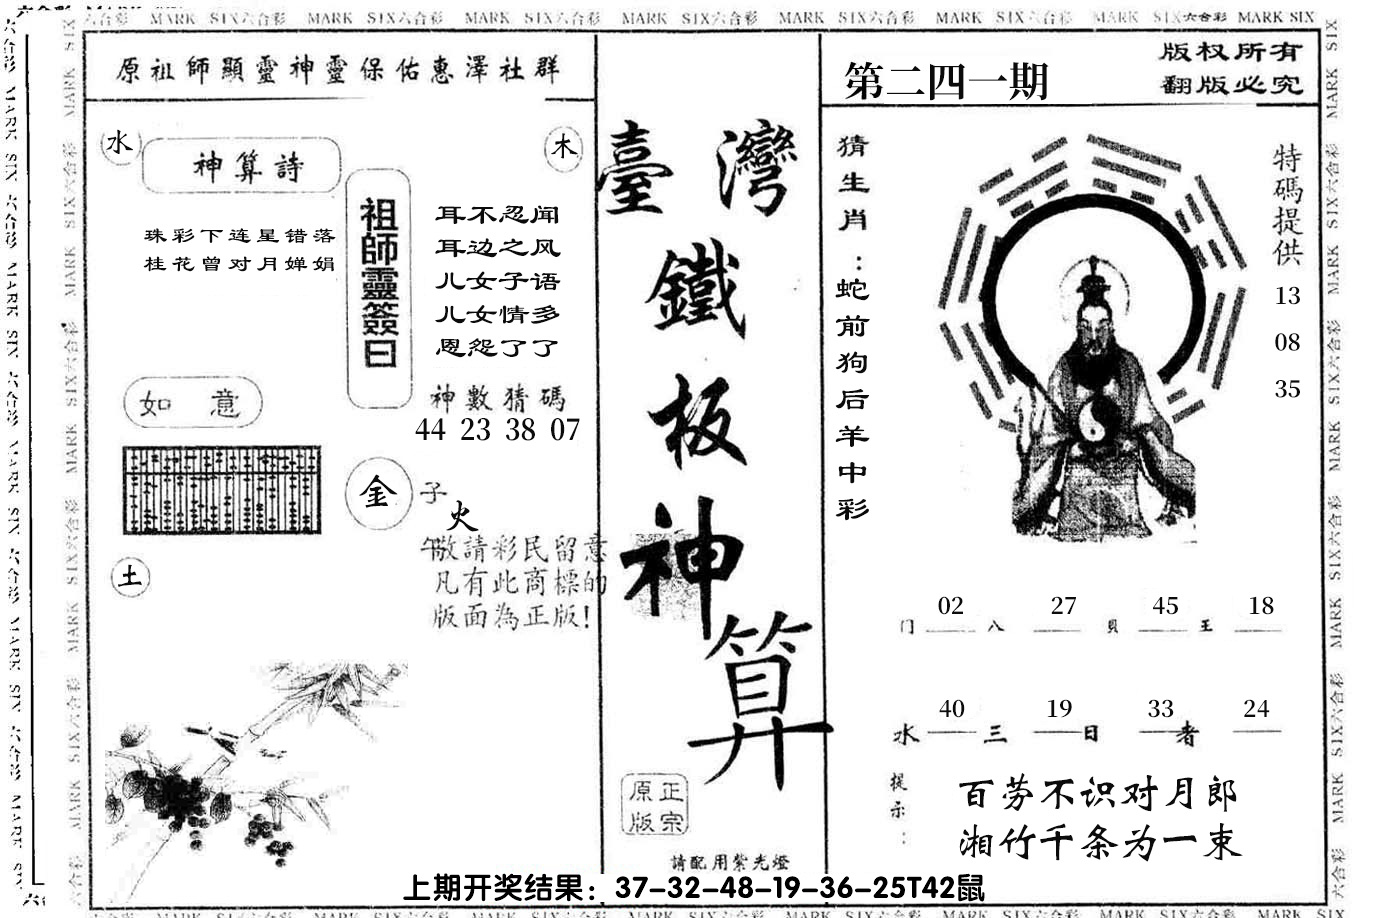 六合彩 MARK SIX六合彩 MARK SIX六合彩 MARK SIX六合彩 MARK SIX六合彩 MARK SIX六合彩 MARK SIX六合彩 MARK SIX六合彩 MARK SIX
原祖師顯靈神靈保佑惠澤社群
水
神算詩
木
珠彩下连星错落
桂花曾对月婵娟
祖師靈簽曰
耳不忍闻
耳边之风
儿女子语
儿女情多
恩怨了了
神數猜碼
44 23 38 07
如意
金
子
火
午
敬請彩民留意
凡有此商標的
版面為正版!
土
臺灣
鐵
板
神
算
原正
版宗
請配用紫光燈
第二四一期
版权所有
翻版必究
猜生肖:蛇前狗后羊中彩
特碼提供
13
08
35
02 27 45 18
门 八 貝 王
40 19 33 24
水 三 日 者
提示:
百劳不识对月郎
湘竹千条为一束
上期开奖结果：37-32-48-19-36-25T42鼠